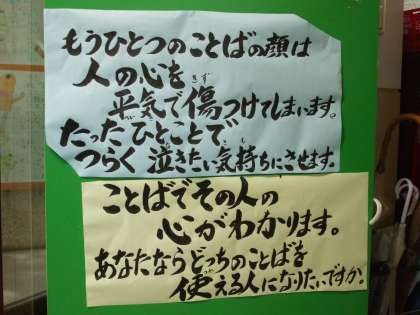 もうひとつのことばの顔は
人の心を
平気で傷つけてしまいます。
たったひとことで
つらく泣きたい気持ちにさせます。
ことばでその人の
心がわかります。
あなたならどっちのことばを
使える人になりたいですか。